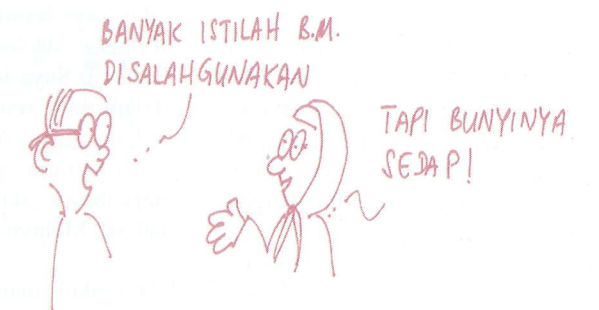 BANYAK ISTILAH B.M.
DISALAHGUNAKAN
TAPI BUNYINYA
SEDAP!